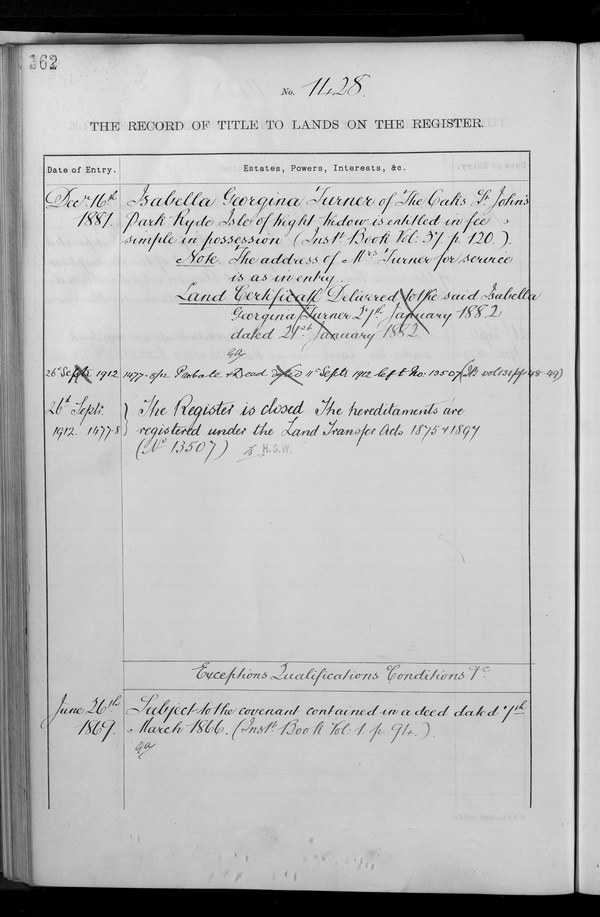 162
No. 1428.
THE RECORD OF TITLE TO LANDS ON THE REGISTER.
Date of Entry.
Estates, Powers, Interests, &c.
Decr 16th 1881.
Isabella Georgina Turner of The Oaks St John's
Park Ryde Isle of Wight Widow is entitled in fee
simple in possession (Inst. Book Vol: 37 p. 120.).
Note. The address of Mrs Turner for service
is as in entry.
Land Certificate Delivered to the said Isabella
Georgina Turner 27th January 1882
dated 21st January 1882.
26 Septr 1912
1477-8/12 Probate & Deed dated 11th Septr 1912 left No: 13507 (
48-49)
26th Septr. 1912. 1477-8
The Register is closed The hereditaments are
registered under the Land Transfer Acts 1875 & 1897
(No 13507)
H.S.W.
Exceptions Qualifications Conditions &c
June 26th 1869.
Subject to the covenant contained in a deed dated 7th
March 1866. (Inst. Book Vol. 1. p. 94.)